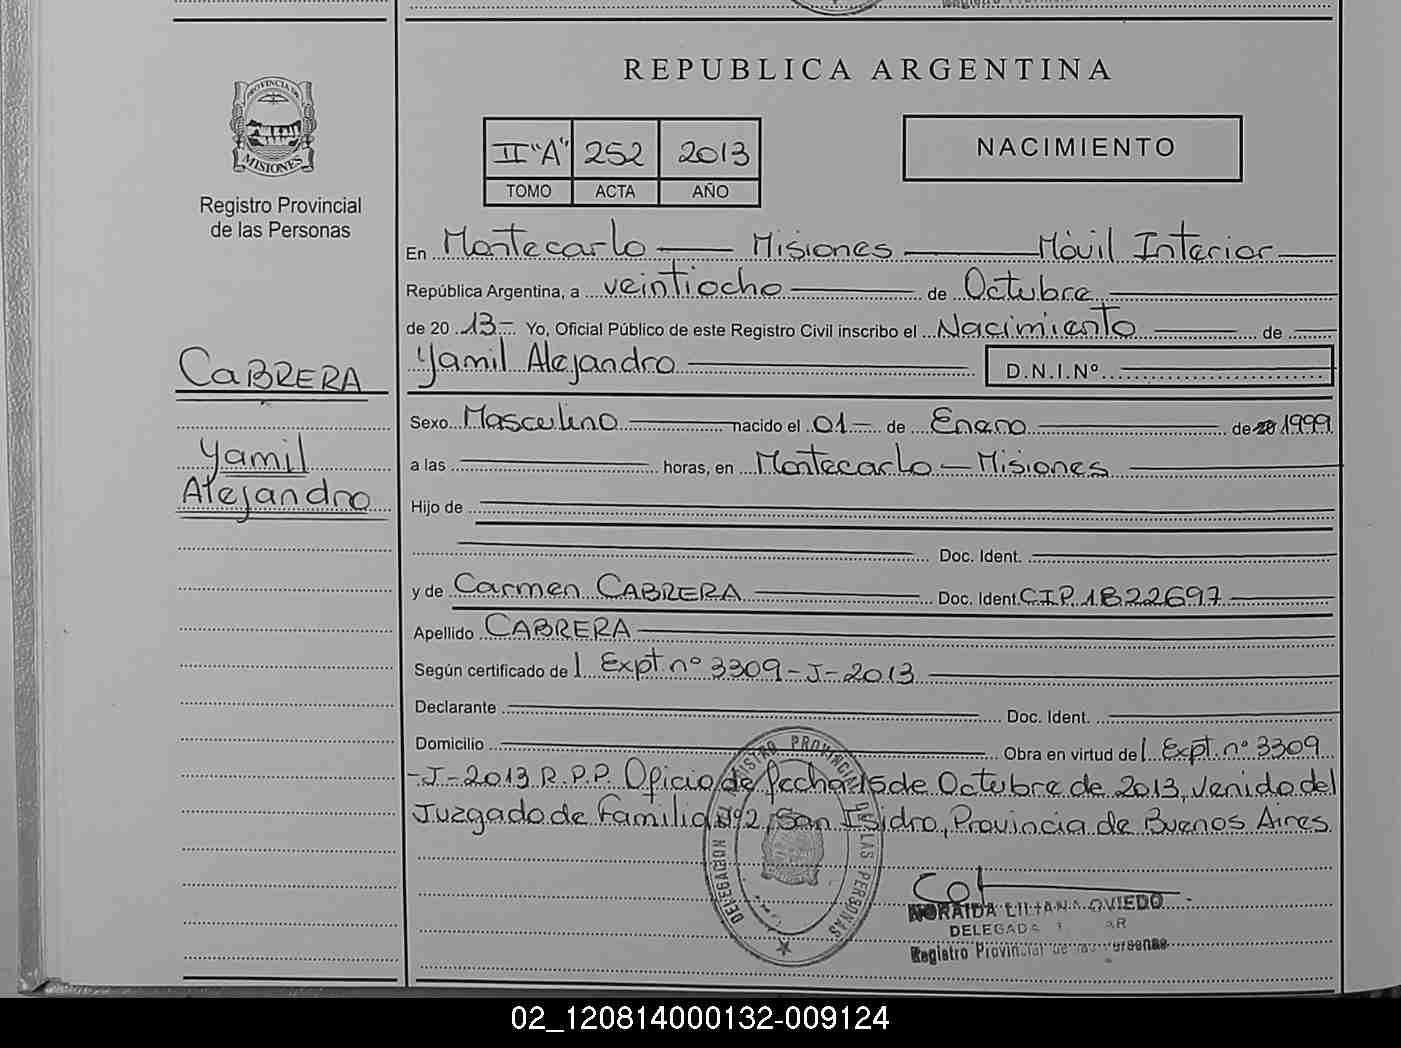 REPUBLICA ARGENTINA
PROVINCIA DE
MISIONES
Registro Provincial
de las Personas
II "A" 252 2013
TOMO ACTA AÑO
NACIMIENTO
En Montecarlo Misiones Móvil Interior
República Argentina, a veintiocho de Octubre
de 20 13- Yo, Oficial Público de este Registro Civil inscribo el Nacimiento de
Yamil Alejandro D.N.I.Nº
CABRERA
Yamil
Alejandro
Sexo Masculino nacido el 01- de Enero de 20 1999
a las horas, en Montecarlo - Misiones
Hijo de
Doc. Ident.
y de Carmen CABRERA Doc. Ident. C.I.P. 1822697
Apellido CABRERA
Según certificado de Expt. nº 3309-J-2013
Declarante Doc. Ident.
Domicilio Obra en virtud de Expt. nº 3309
-J-2013 R.P.P. Oficio de fecha 15 de Octubre de 2013, venido del
Juzgado de Familia Nº2, San Isidro, Provincia de Buenos Aires
DELEGACION DEL REGISTRO PROVINCIAL DE LAS PERSONAS
NORAIDA LILIANA OVIEDO
DELEGADA
Registro Provincial de las Personas
02_120814000132-009124